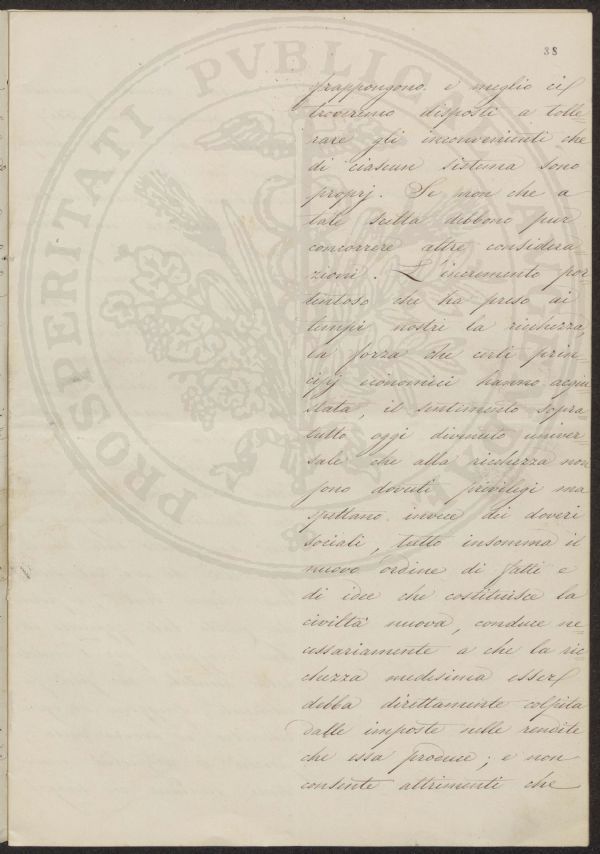 38
frappongono. e meglio ci
troveremo disposti a tolle=
rare gli inconvenienti che
di ciascun sistema sono
proprj. Se non che a
tale scelta debbono pur
concorrere altre considera=
zioni. L'incremento por=
tentoso che ha preso ai
tempi nostri la ricchezza,
la forza che certi prin=
cipj economici hanno acqui=
stata, il sentimento sopra=
tutto oggi divenuto univer=
sale che alla ricchezza non
sono dovuti privilegi ma
spettano invece dei doveri
sociali, tutto insomma il
nuovo ordine di fatti e
di idee che costituisce la
civiltà nuova, conduce ne=
cessariamente a che la ric=
chezza medesima esser
debba direttamente colpita
dalle imposte nelle rendite
che essa produce; e non
consente altrimenti che
PROSPERITATI PVBLIC